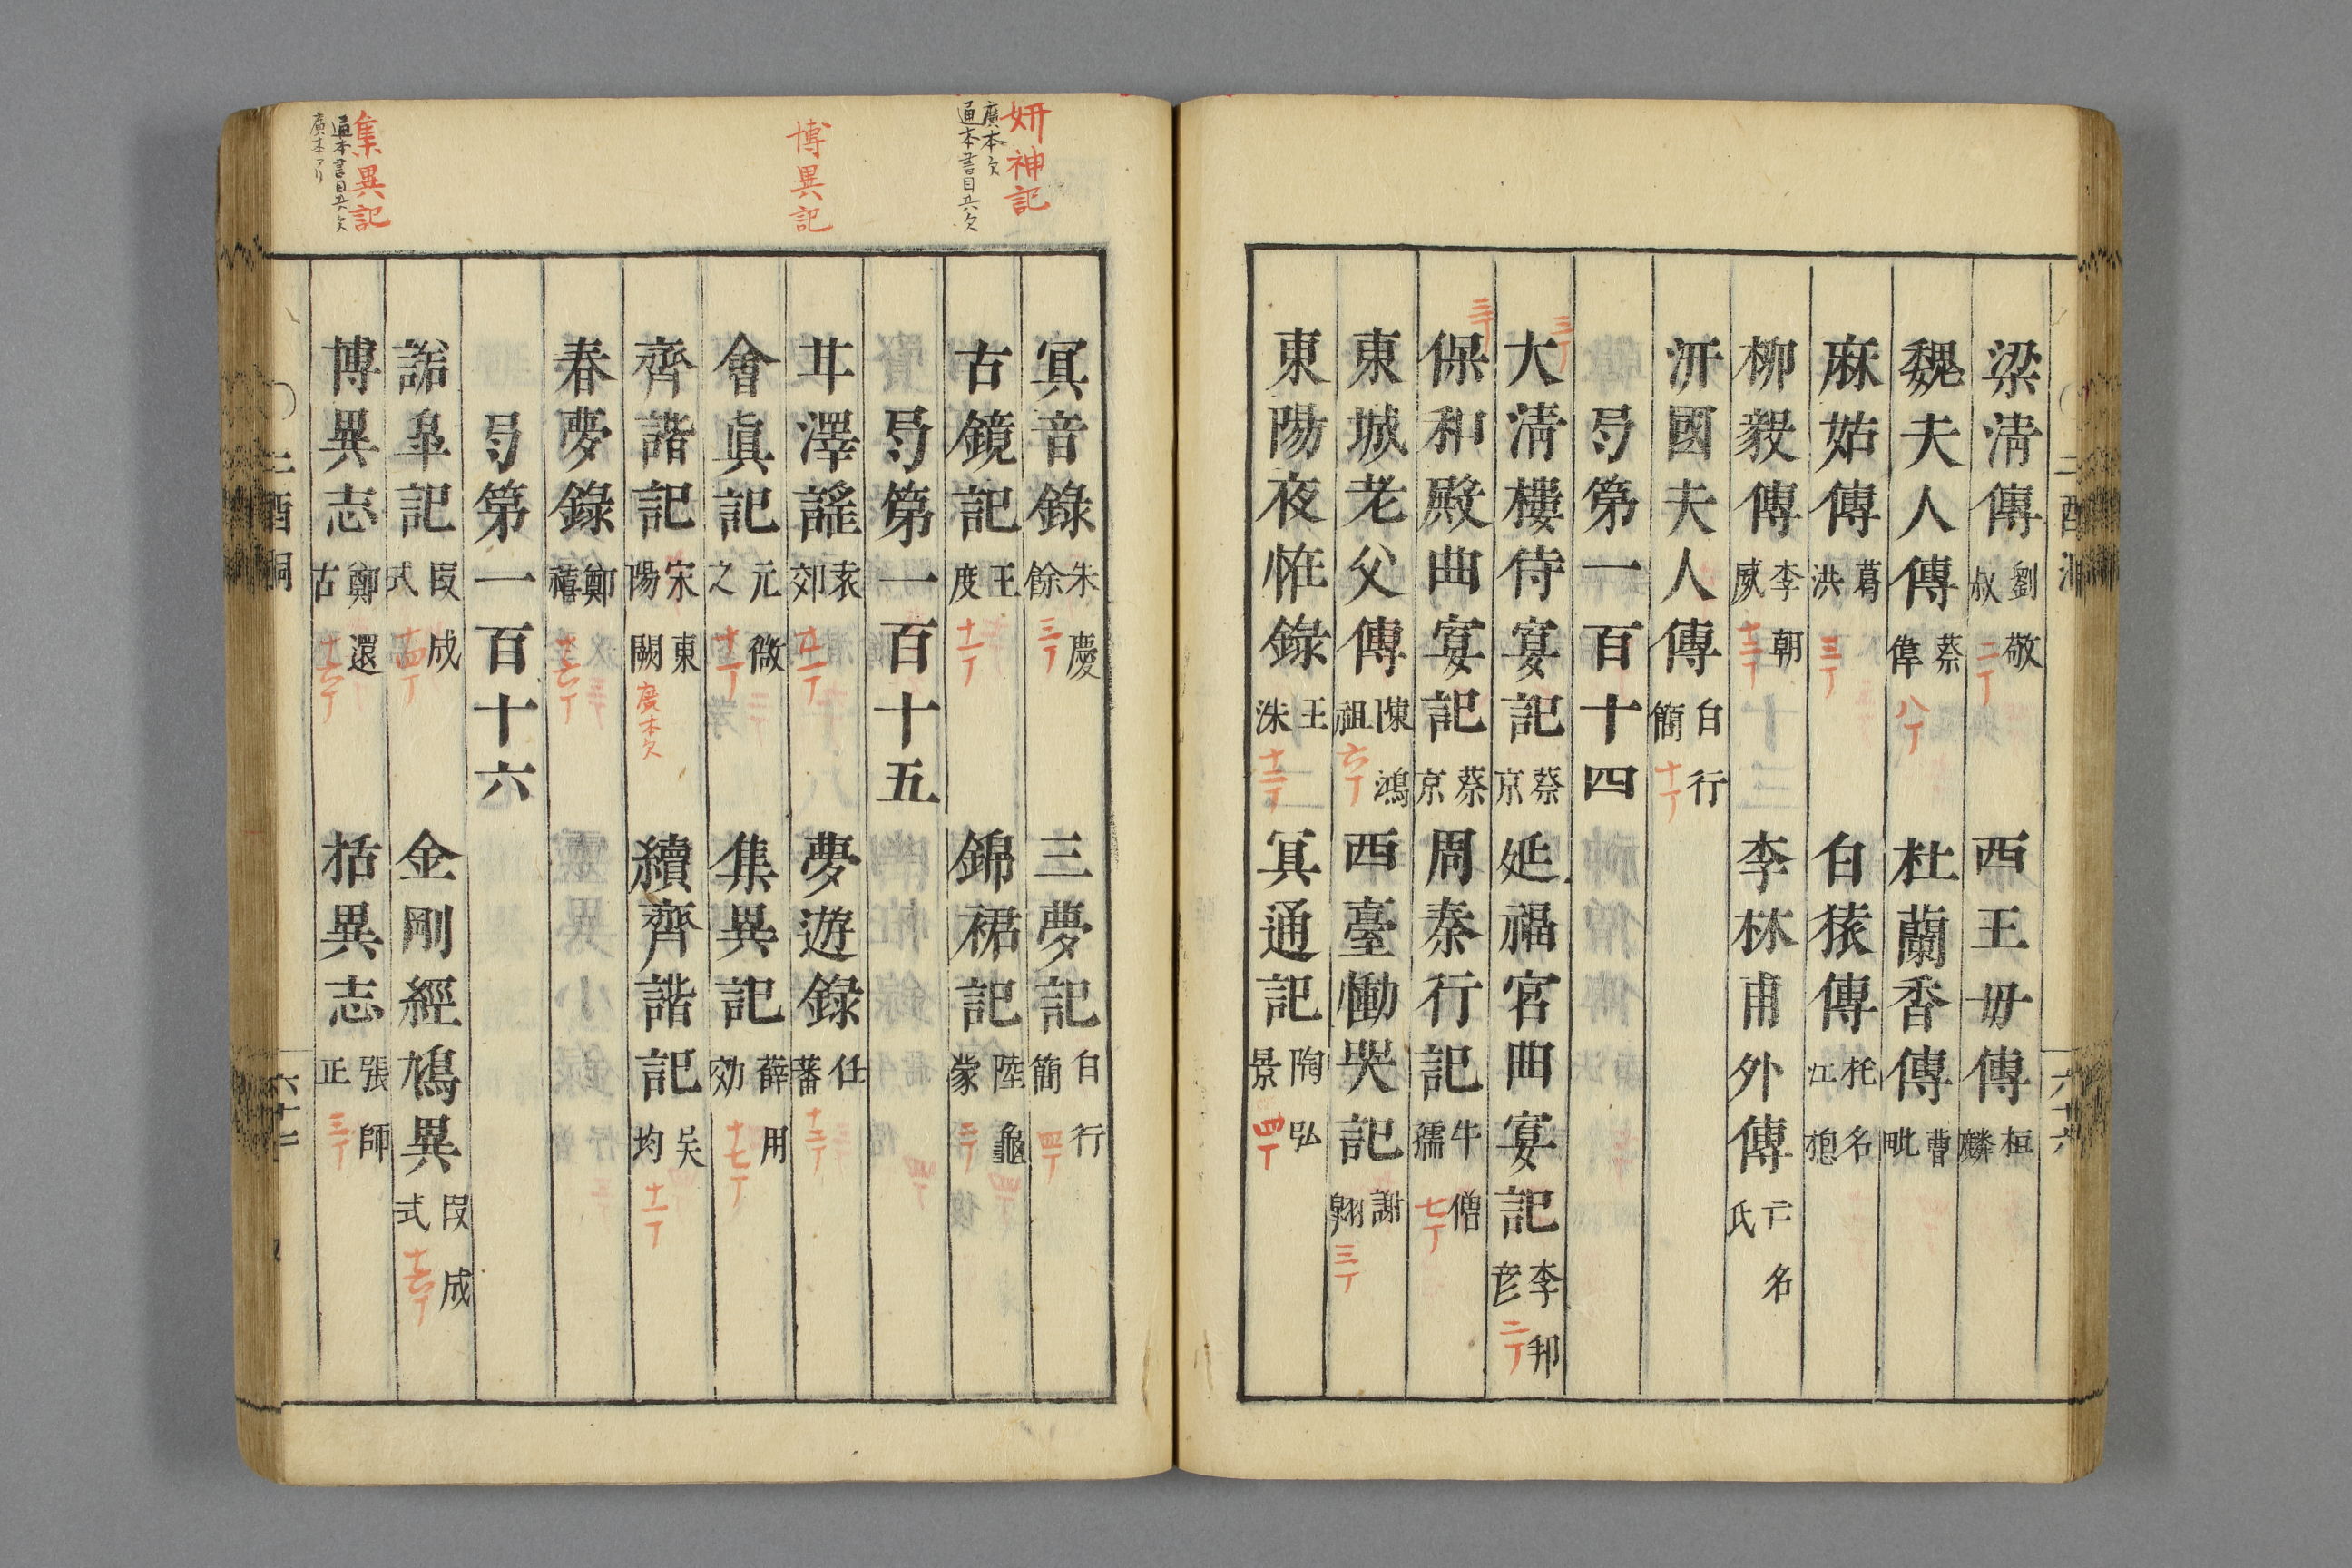 梁淸傳 劉敬叔 二丁 西王毋傳 桓麟
魏夫人傳 蔡偉 八丁 杜蘭香傳 曹毗
麻姑傳 葛洪 三丁 白猿傳 托名江總
柳毅傳 李朝威 十三丁 李林甫外傳 亡名氏
汧國夫人傳 白行簡 十丁
弓第一百十四
大淸樓侍宴記 蔡京 三丁 延福宮曲宴記 李邦彥 二丁
保和殿曲宴記 蔡京 三丁 周秦行記 牛僧孺 七丁
東城老父傳 陳鴻祖 六丁 西臺慟哭記 謝翱 三丁
東陽夜怪錄 王洙 十二丁 冥通記 陶弘景 四丁
二酉洞 六十六
妍神記
廣本欠
通本書目共欠
博異記
集異記
通本書目共欠
廣本アリ
冥音錄 朱慶餘 三丁 三夢記 白行簡 四丁
古鏡記 王度 十丁 錦裙記 陸龜蒙 二丁
弓第一百十五
甘澤謠 袁郊 廿一丁 夢遊錄 任蕃 十二丁
會眞記 元微之 十一丁 集異記 薛用弱 十七丁
齊諧記 宋東陽闕 廣本欠 續齊諧記 吳均 十一丁
春夢錄 鄭禧 十六丁
弓第一百十六
諾皐記 段成式 十四丁 金剛經鳩異 段成式 十六丁
博異志 鄭還古 十六丁 括異志 張師正 三丁
二酉洞 六十七